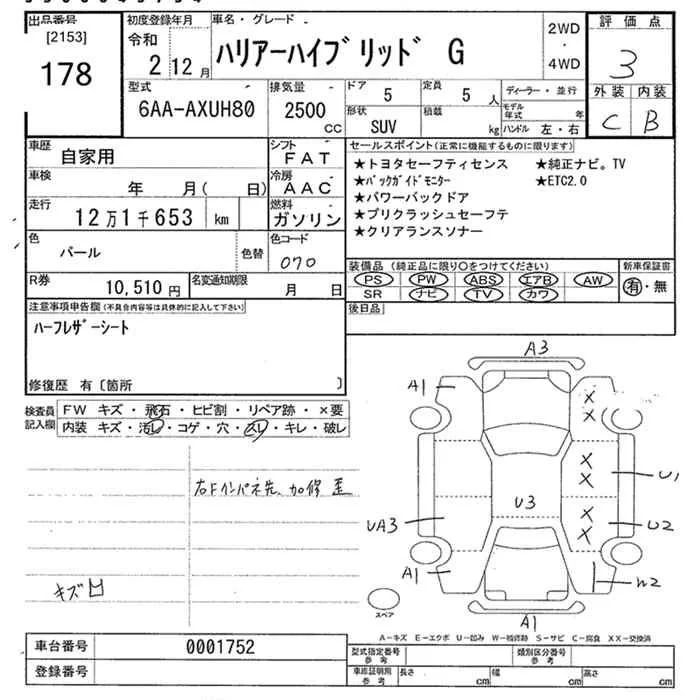 出品番号
[2153]
178
初度登録年月
令和
2 12 月
車名・グレード
ハリアーハイブリッド G
2WD
・
4WD
評価点
3
外装 内装
C B
型式
6AA-AXUH80
排気量
2500
CC
ドア
5
定員
5 人
形状
SUV
積載
kg
ディーラー・並行
モデル年式 年
ハンドル 左・右
車歴
自家用
シフト
FAT
車検
年 月( 日)
冷房
AAC
走行
12万1千653 km
燃料
ガソリン
色
パール
色替
色コード
070
R券
10,510 円
名変通知期限
月 日
セールスポイント(正常に機能するものに限ります)
★トヨタセーフティセンス ★純正ナビ。TV
★バックガイドモニター ★ETC2.0
★パワーバックドア
★プリクラッシュセーフテ
★クリアランスソナー
装備品(純正品に限り○をつけてください)
PS PW ABS エアB AW
SR ナビ TV カワ
新車保証書
有・無
後日品
注意事項申告欄(不具合内容等は具体的に記入して下さい)
ハーフレザーシート
修復歴 有〔箇所 〕
検査員
記入欄
FW キズ・飛石・ヒビ割・リペア跡・×要
内装 キズ・汚れ・コゲ・穴・スレ・キレ・破レ
右Fインパネ先、加修歪
キズ凹
A3
A1
X
X
X
X
U1
U3
UA3
X
X
U2
A1
W2
A1
スペア
A-キズ E-エクボ U-凹み W-補修跡 S-サビ C-腐食 XX-交換済
車台番号
0001752
登録番号
型式指定番号
参考
類別区分番号
参考
車庫証明用
参考
長さ cm
幅 cm
高さ cm